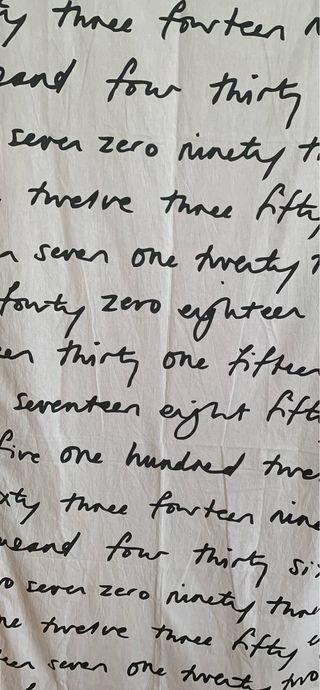 ty three fourteen n
sand four thirty
seven zero ninety t
twelve three fifty
n seven one twenty t
fourty zero eighteen
en thirty one fifteen
seventeen eight fift
five one hundred twe
xty three fourteen nine
usand four thirty si
o seven zero ninety thr
ne twelve three fifty
een seven one twenty two